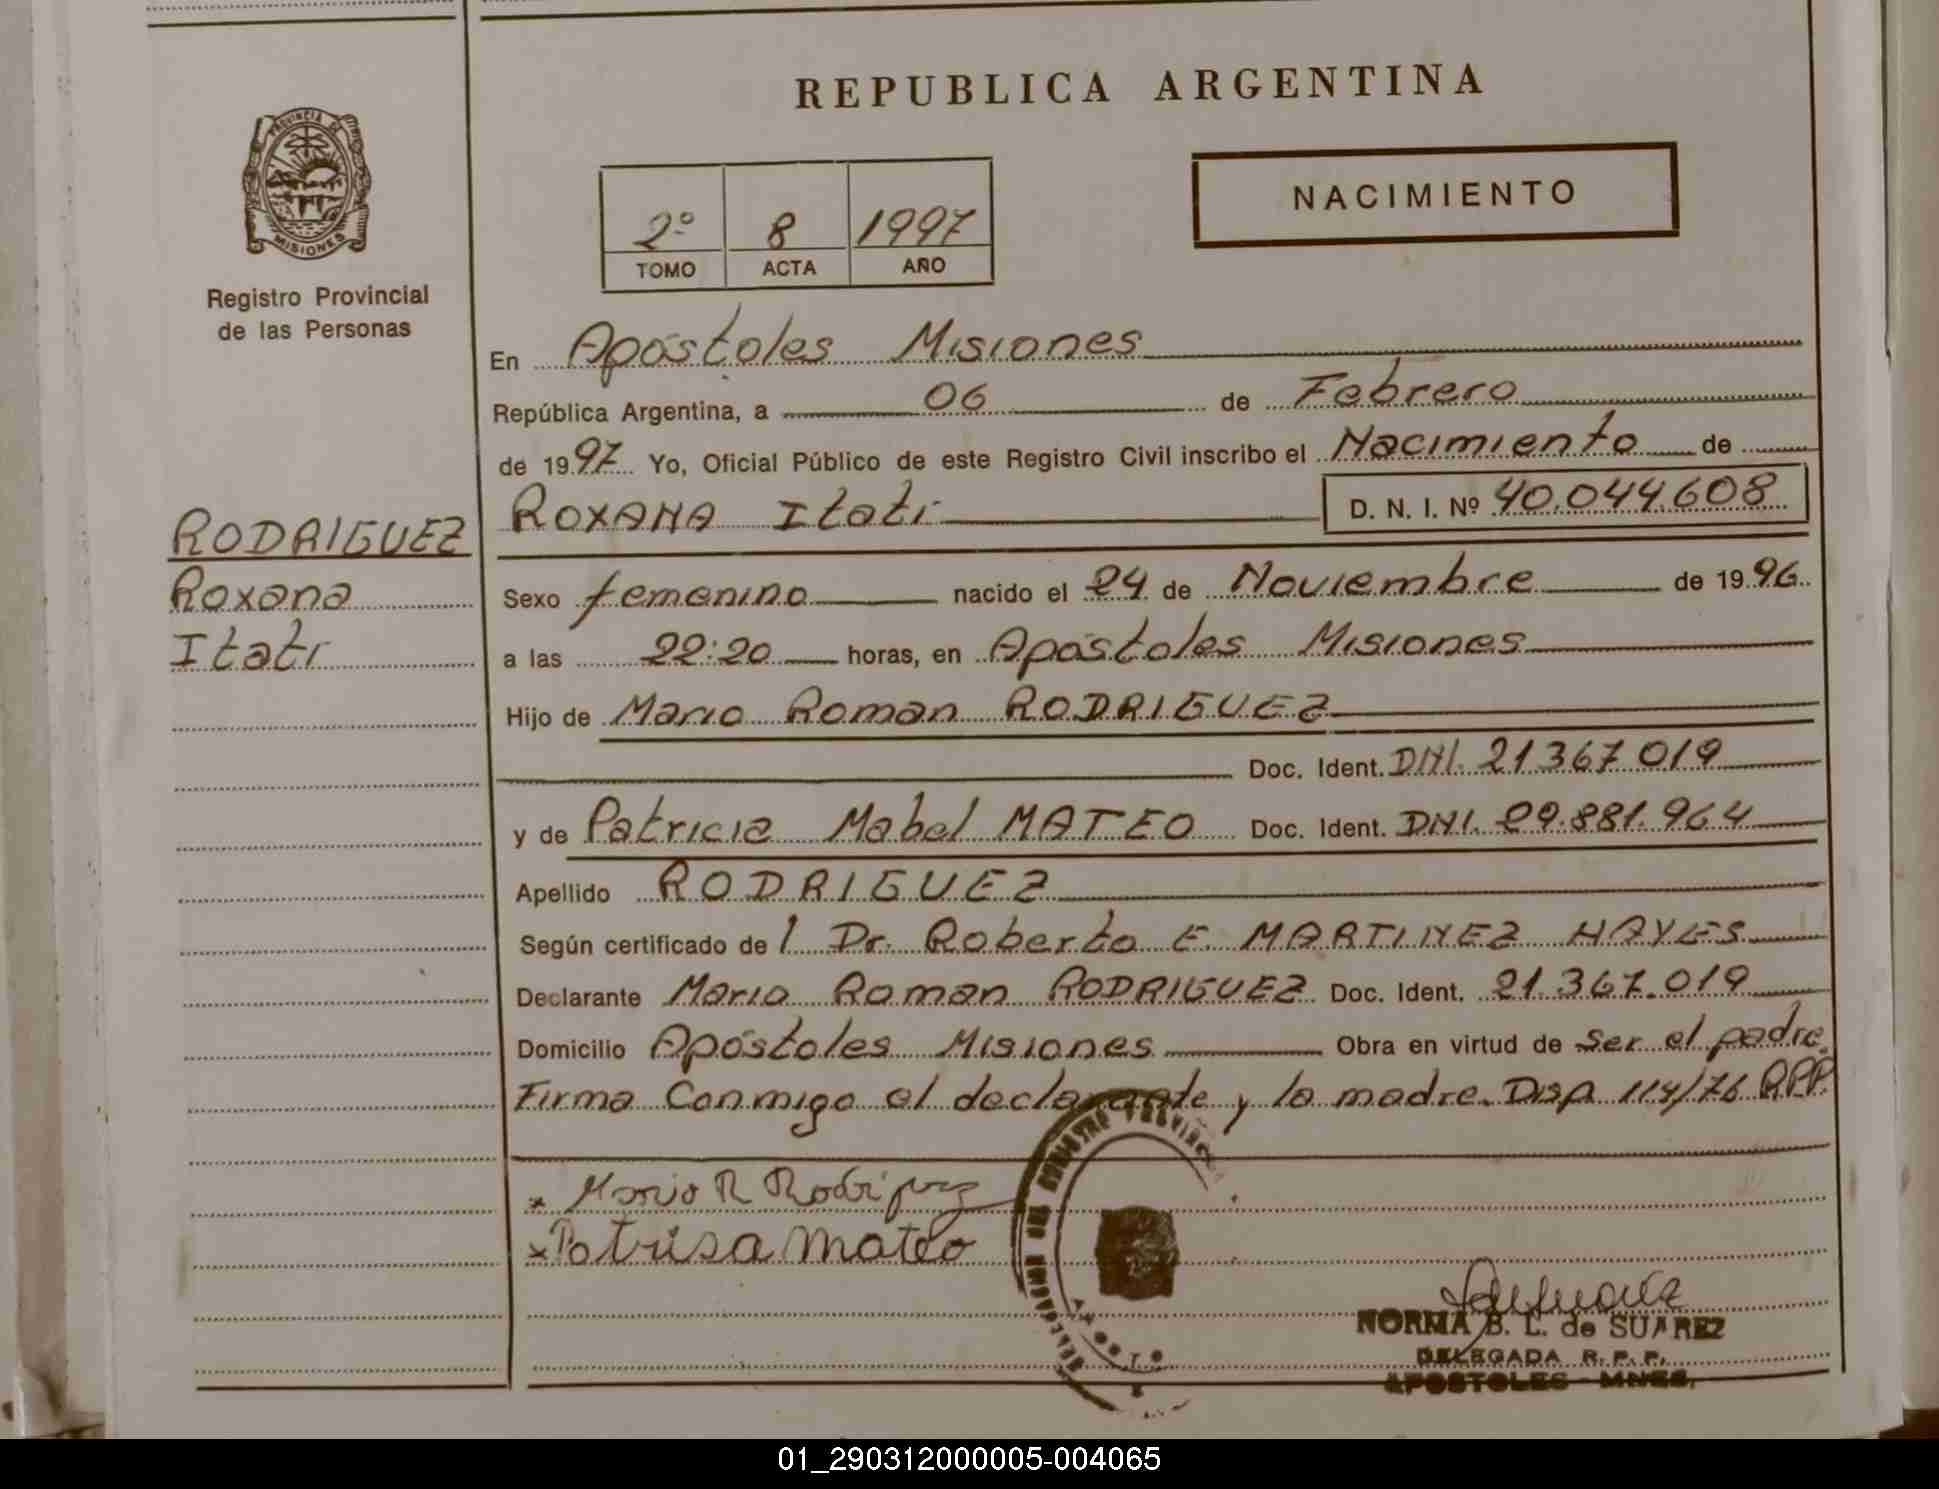 REPUBLICA ARGENTINA
PROVINCIA DE
MISIONES
Registro Provincial
de las Personas
NACIMIENTO
2º 8 1997
TOMO ACTA AÑO
En Apóstoles Misiones
República Argentina, a 06 de Febrero
de 1997 Yo, Oficial Público de este Registro Civil inscribo el Nacimiento de
ROXANA Itatí D. N. I. Nº 40.044.608
RODRIGUEZ
Roxana
Itatí
Sexo femenino nacido el 24 de Noviembre de 1996
a las 22:20 horas, en Apóstoles Misiones
Hijo de Mario Roman RODRIGUEZ
Doc. Ident. DNI. 21.367.019
y de Patricia Mabel MATEO Doc. Ident. DNI. 29.881.964
Apellido RODRIGUEZ
Según certificado de l Dr. Roberto E. MARTINEZ HAYES
Declarante Mario Roman RODRIGUEZ Doc. Ident. 21.367.019
Domicilio Apóstoles Misiones Obra en virtud de ser el padre.
Firma Conmigo el declarante y la madre. Disp 114/76 R.P.P.
x Mario R Rodriguez
x Patrisa Mateo
NORMA B. L. de SUAREZ
DELEGADA R. P. P.
APOSTOLES - MNES.
01_290312000005-004065